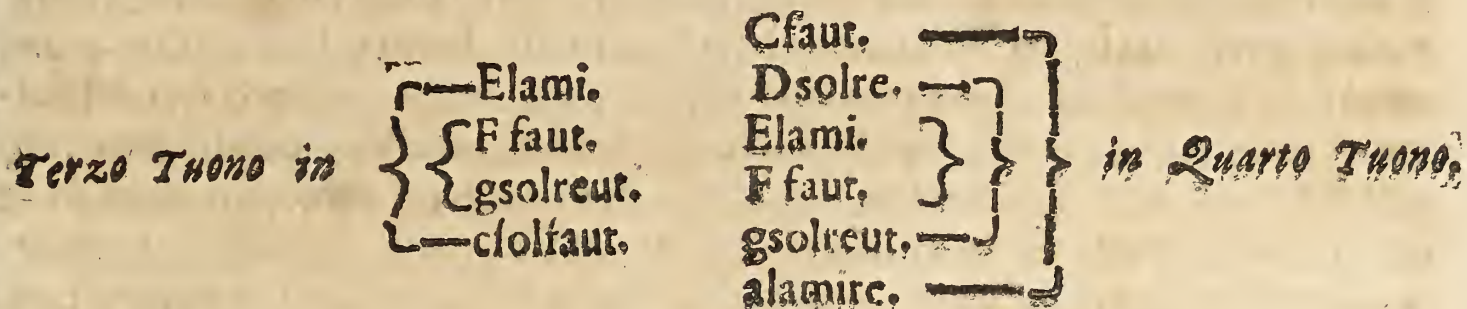 Terzo Tuono in
Elami.
F faut.
gsolreut.
csolfaut.
Cfaut.
Dsolre.
Elami.
F faut.
gsolreut.
alamire.
in Quarto Tuono,